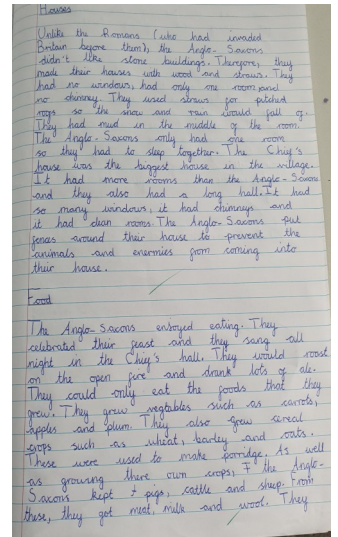 Houses
Unlike the Romans (who had invaded
Britain before them), the Anglo-Saxons
didn't like stone buildings. Therefore, they
made their houses with wood and straws. They
had no windows, had only one room and
no chimney. They used straws for pitched
roofs so the snow and rain would fall of.
They had mud in the middle of the room.
The Anglo-Saxons only had one room
so they had to sleep together. The Chief's
house was the biggest house in the village.
It had more rooms than the Anglo-Saxons
and they also had a long hall. It had
so many windows, it had chimneys and
it had clean rooms. The Anglo-Saxons put
fences around their house to prevent the
animals and enermies from coming into
their house.
Food
The Anglo-Saxons enjoyed eating. They
celebrated their feast and they sang all
night in the Chief's hall. They would roast
on the open fire and drank lots of ale.
They could only eat the foods that they
grew. They grew vegtables such as carrots,
apples and plum. They also grow cereal
crops such as wheat, barley and oats.
These were used to make porridge. As well
as growing there own crops, the Anglo-
Saxons kept pigs, cattle and sheep. From
these, they got meat, milk and wool. They